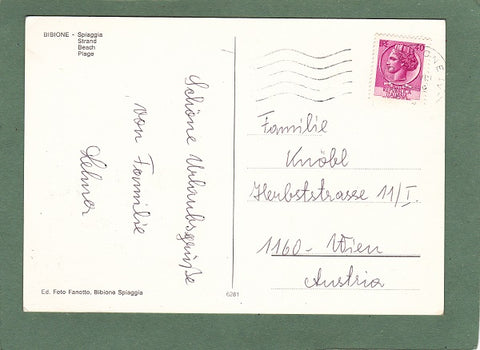 BIBIONE - Spiaggia
Strand
Beach
Plage
Schöne Urlaubsgrüße
von Familie
Selma
Ed. Foto Fanotto, Bibione Spiaggia
6281
40
Familie
Knöbl
Herbststrasse 11/I.
1160 - Wien
Austria